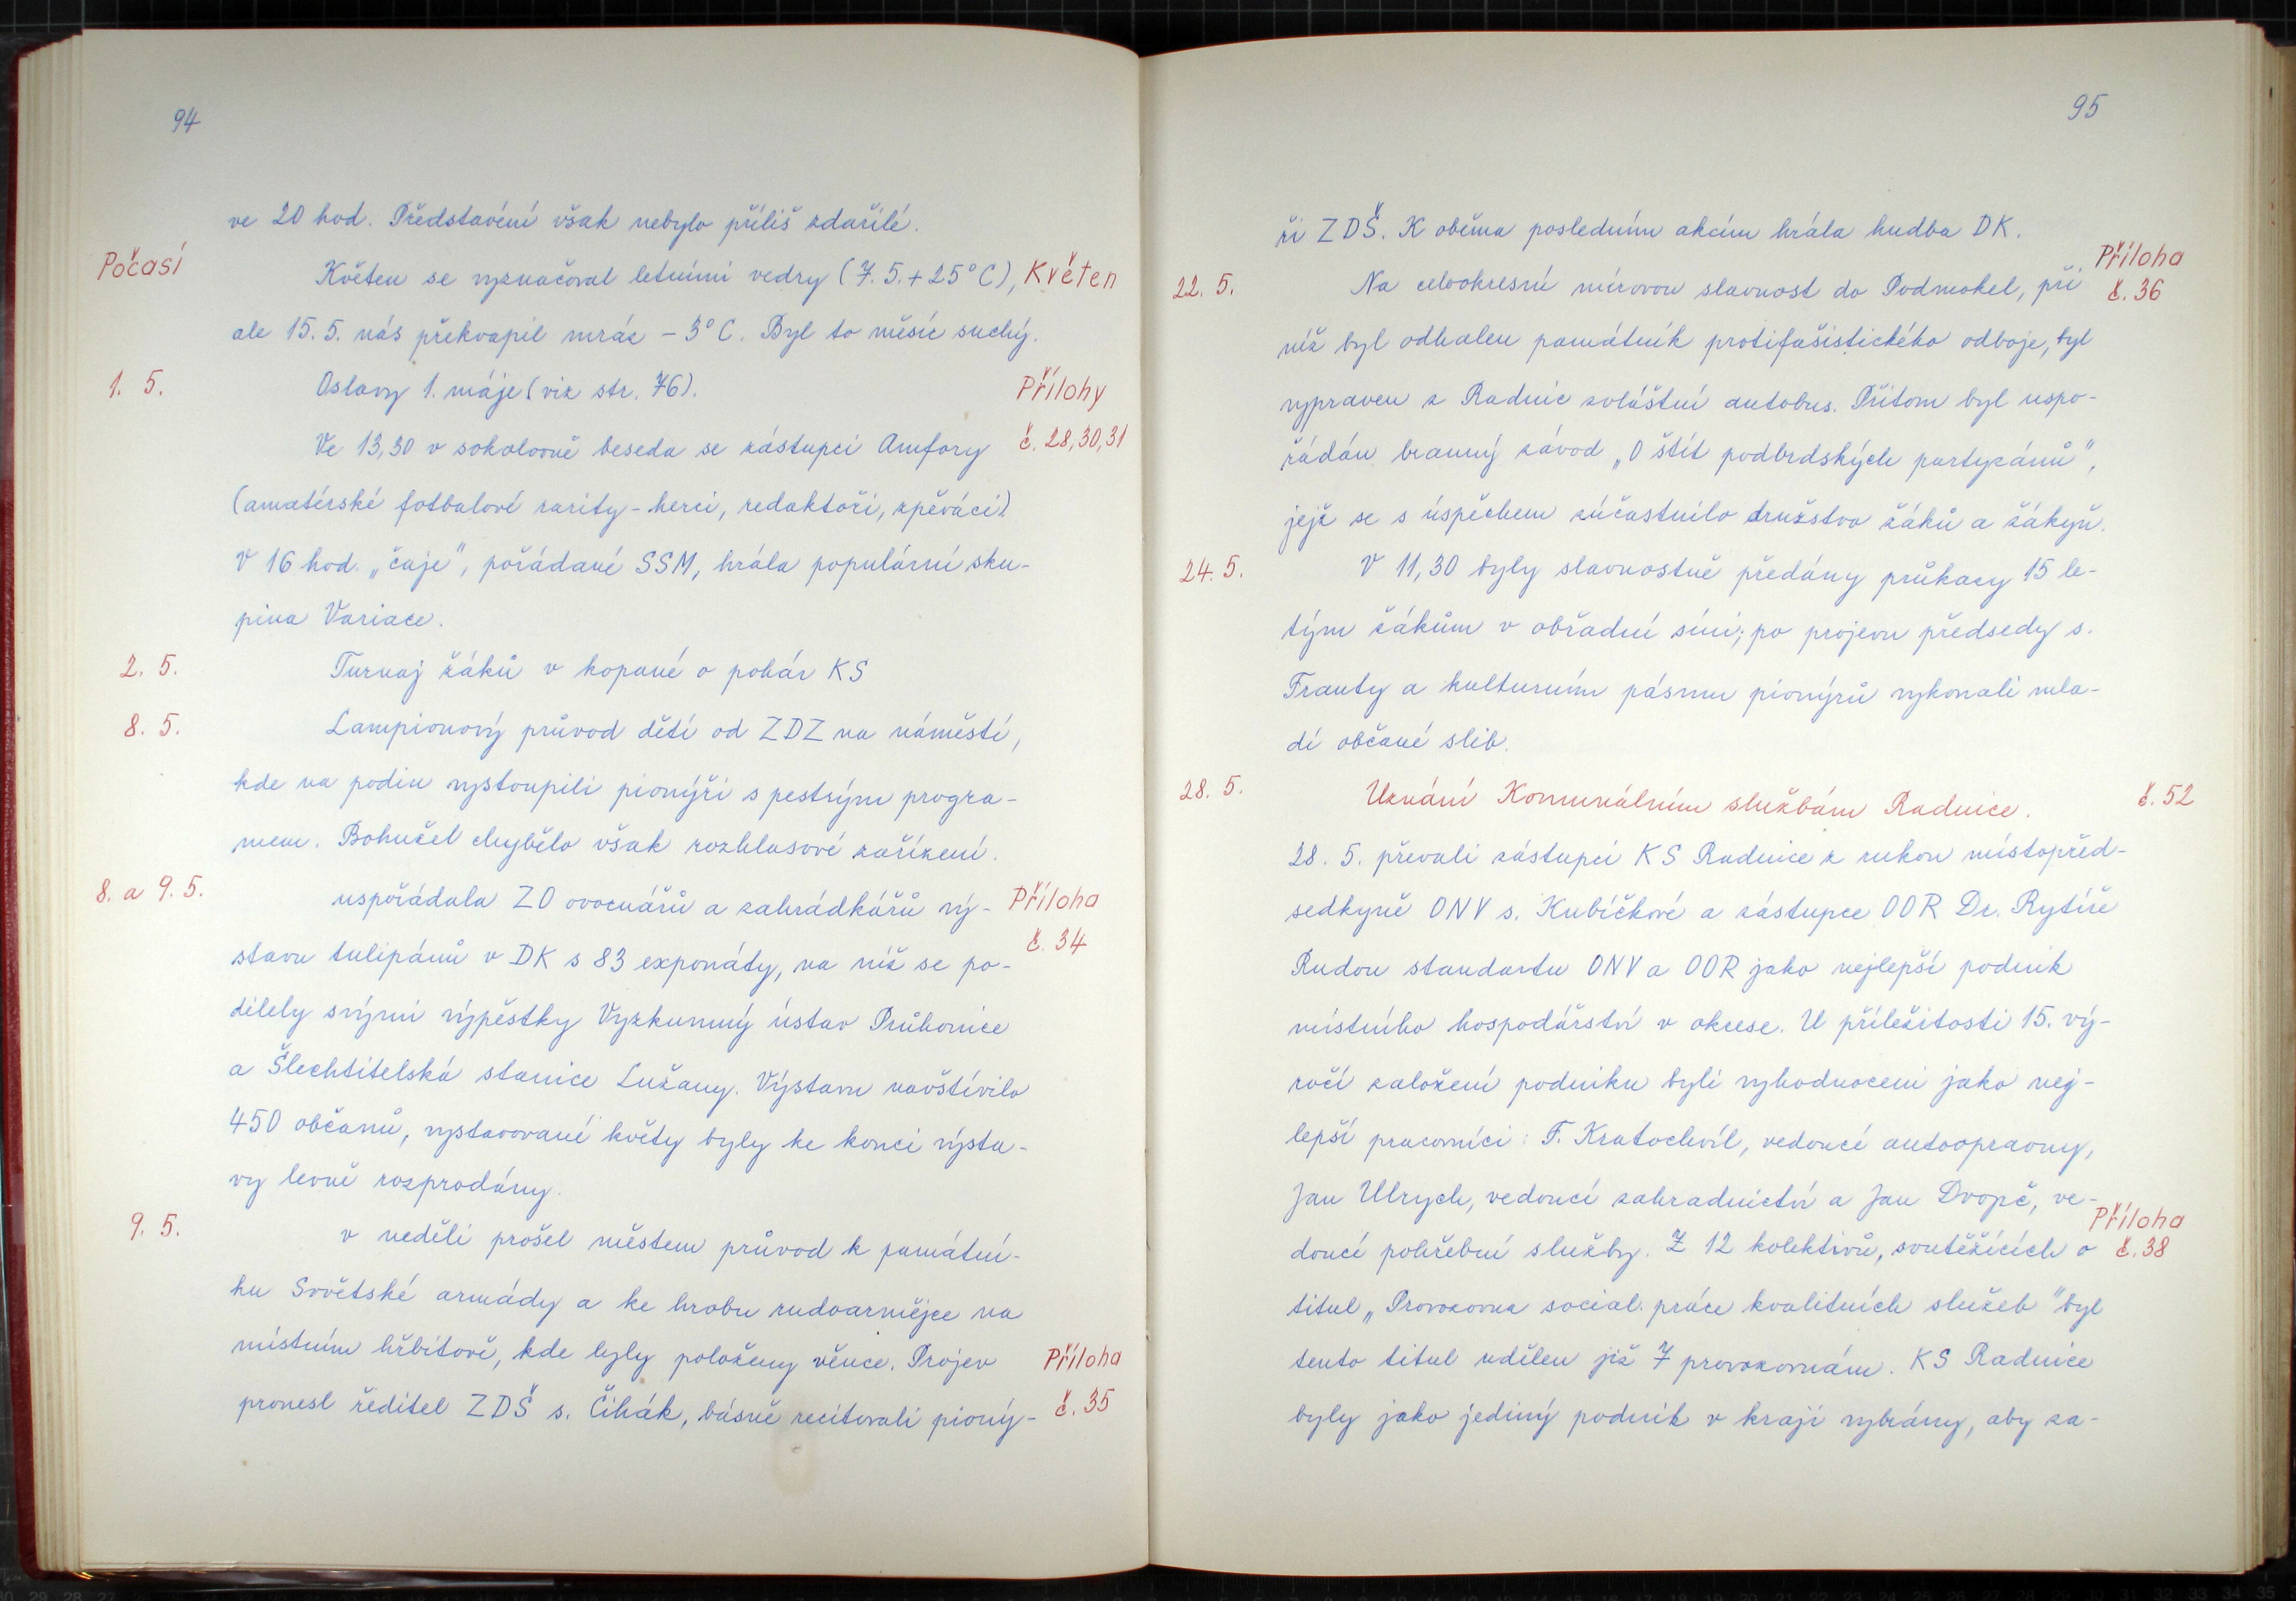 94
ve 20 hod. Představení však nebylo příliš zdařilé.
Počasí
Květen se vyznačoval letními vedry (7. 5. + 25° C), Květen
ale 15. 5. nás překvapil mráz – 3° C. Byl to měsíc suchý.
1. 5.
Oslavy 1. máje (viz str. 76).
Přílohy
Ve 13,30 v sokolovně beseda se zástupci Amfory
č. 28, 30, 31
(amatérské fotbalové rarity - herci, redaktoři, zpěváci).
V 16 hod. „čaje“, pořádané SSM, hrála populární sku-
pina Variace.
2. 5.
Turnaj žáků v kopané o pohár KS
8. 5.
Lampionový průvod dětí od ZDZ na náměstí,
kde na podiu vystoupili pionýři s pestrým progra-
mem. Bohužel chybělo však rozhlasové zařízení.
8. a 9. 5.
uspořádala ZO ovocnářů a zahrádkářů vý-
Příloha
č. 34
stavu tulipánů v DK s 83 exponáty, na níž se po-
dílely svými výpěstky Výzkumný ústav Průhonice
a Šlechtitelská stanice Lužany. Výstavu navštívilo
450 občanů, vystavované květy byly ke konci výsta-
vy levně rozprodány.
9. 5.
v neděli prošel městem průvod k památní-
ku Sovětské armády a ke hrobu rudoarmějce na
místním hřbitově, kde byly položeny věnce. Projev
Příloha
pronesl ředitel ZDŠ s. Čihák, básně recitovali piony-
č. 35
95
ři ZDŠ. K oběma posledním akcím hrála hudba DK.
Příloha
č. 36
22. 5.
Na celookresní mírovou slavnost do Podmokel, při
níž byl odhalen památník protifašistického odboje, byl
vypraven z Radnic zvláštní autobus. Přitom byl uspo-
řádán branný závod „O štít podbrdských partyzánů“,
jejž se s úspěchem zúčastnilo družstvo žáků a žákyň.
24. 5.
V 11,30 byly slavnostně předány průkazy 15 le-
tým žákům v obřadní síni; po projevu předsedy s.
Franty a kulturním pásmu pionýrů vykonali mla-
dí občané slib.
28. 5.
Uznání Komunálním službám Radnice.
č. 52
28. 5. převzali zástupci KS Radnice z rukou místopřed-
sedkyně ONV s. Kubíčkové a zástupce OOR Dr. Rytíře
Rudou standartu ONV a OOR jako nejlepší podnik
místního hospodářství v okrese. U příležitosti 15. vý-
ročí založení podniku byli vyhodnoceni jako nej-
lepší pracovníci: F. Kratochvíl, vedoucí autoopravny,
Jan Ulrych, vedoucí zahradnictví a Jan Dvopč, ve-
Příloha
doucí pohřební služby. Z 12 kolektivů, soutěžících o
č. 38
titul „Provozovna social. práce kvalitních služeb“ byl
tento titul udělen již 7 provozovnám. KS Radnice
byly jako jediný podnik v kraji vybrány, aby za-